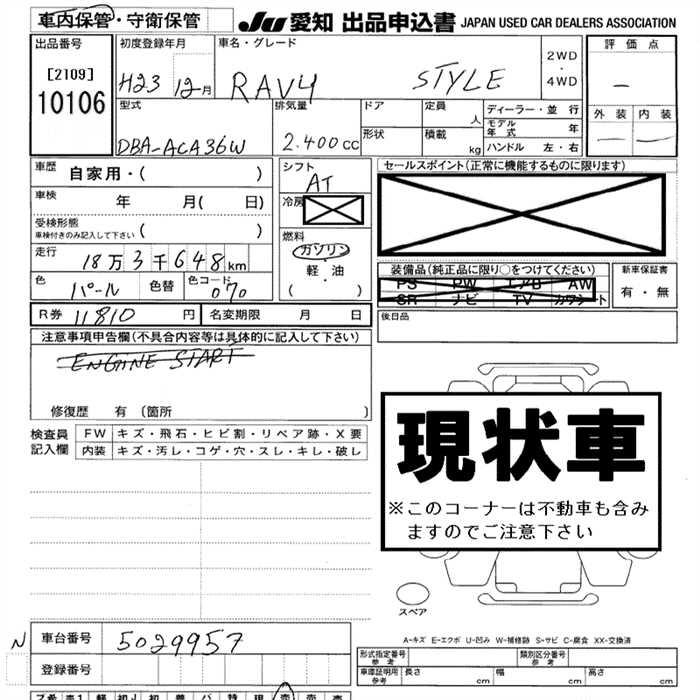 車内保管・守衛保管
JU 愛知 出品申込書 JAPAN USED CAR DEALERS ASSOCIATION
出品番号
[2109]
10106
初度登録年月
H23 12月
車名・グレード
RAV4 STYLE
2WD
・
4WD
評価点
―
外装 内装
― ―
型式
DBA-ACA36W
排気量
2.400cc
ドア
形状
定員 人
積載 kg
ディーラー・並行
モデル年式 年
ハンドル 左・右
車歴 自家用・( )
車検 年 月( 日)
受検形態
車検付きのみ記入して下さい ( )
走行 18万3千648km
色 パール 色替 色コード 070
R券 11810円 名変期限 月 日
シフト
AT
冷房
燃料
ガソリン
・
軽・油
( )
セールスポイント(正常に機能するものに限ります)
装備品(純正品に限り○をつけてください)
PS PW エアB AW
SR ナビ TV カワシート
新車保証書
有・無
後日品
注意事項申告欄(不具合内容等は具体的に記入して下さい)
ENGINE START
修復歴 有 〔箇所 〕
検査員記入欄
FW キズ・飛石・ヒビ割・リペア跡・X要
内装 キズ・汚レ・コゲ・穴・スレ・キレ・破レ
現状車
※このコーナーは不動車も含み
ますのでご注意下さい
スペア
A-キズ E-エクボ U-凹み W-補修跡 S-サビ C-腐食 XX-交換済
N
車台番号 5029957
登録番号
形式指定番号
参考
類別区分番号
参考
車庫証明用
参考
長さ cm 幅 cm 高さ cm